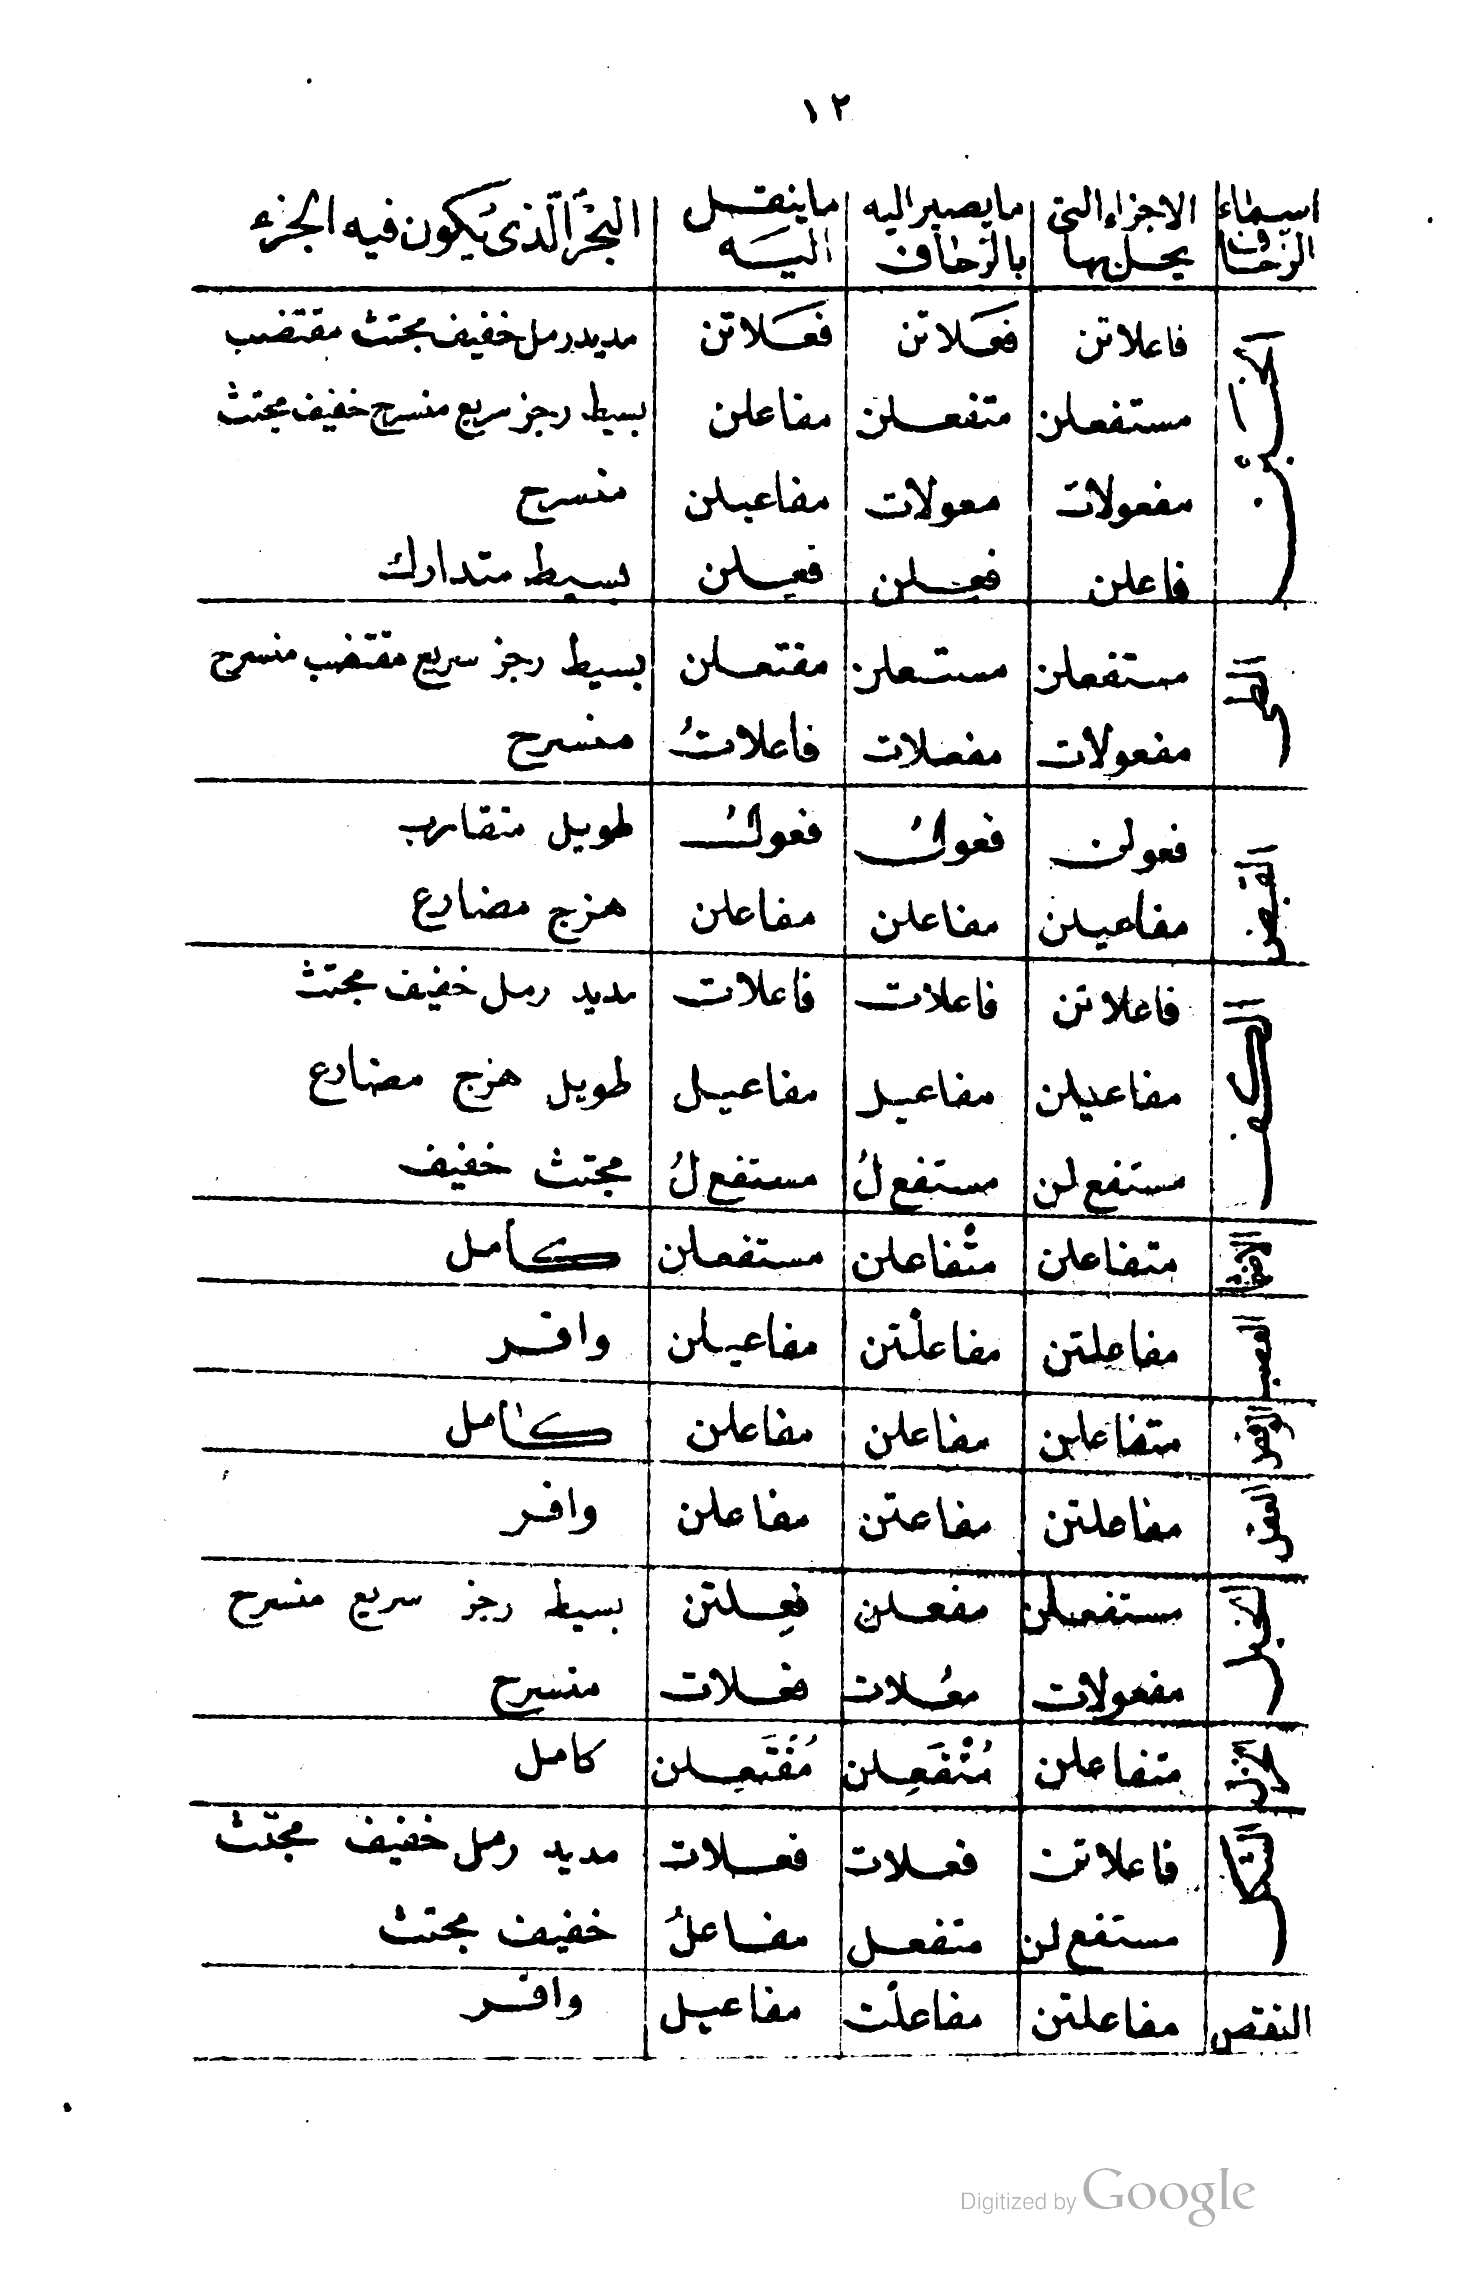 ١٢
اسماء الزحاف | الاجزاء التى يحل بها | ما يصير اليه بالزحاف | ما ينقل اليه | البحر الّذى يكون فيه الجزء
الخبن | فاعلاتن | فعَلاتن | فعَلاتن | مديد رمل خفيف مجتث مقتضب
مستفعلن | متفعلن | مفاعلن | بسيط رجز سريع منسرح خفيف مجتث
مفعولات | معولات | مفاعيلن | منسرح
فاعلن | فعِلن | فعِلن | بسيط متدارك
الطى | مستفعلن | مستعلن | مفتعلن | بسيط رجز سريع مقتضب منسرح
مفعولات | مفعلات | فاعلاتُ | منسرح
القبض | فعولن | فعولُ | فعولُ | طويل متقارب
مفاعيلن | مفاعلن | مفاعلن | هزج مضارع
الكف | فاعلاتن | فاعلات | فاعلات | مديد رمل خفيف مجتث
مفاعيلن | مفاعيل | مفاعيل | طويل هزج مضارع
مستفع لن | مستفع لُ | مستفع لُ | مجتث خفيف
الاضمار | متفاعلن | متْفاعلن | مستفعلن | كامل
العصب | مفاعلتن | مفاعلْتن | مفاعيلن | وافر
الوقص | متفاعلن | مفاعلن | مفاعلن | كامل
العقل | مفاعلتن | مفاعتن | مفاعلن | وافر
الخبل | مستفعلن | مفعلن | فعِلتن | بسيط رجز سريع منسرح
مفعولات | معُلات | فعلات | منسرح
الخزل | متفاعلن | مُتْفَعِلن | مُفْتَعِلن | كامل
الشكل | فاعلاتن | فعلات | فعلات | مديد رمل خفيف مجتث
مستفع لن | متفعل | مفاعلُ | خفيف مجتث
النقص | مفاعلتن | مفاعلْت | مفاعيل | وافر
Digitized by Google